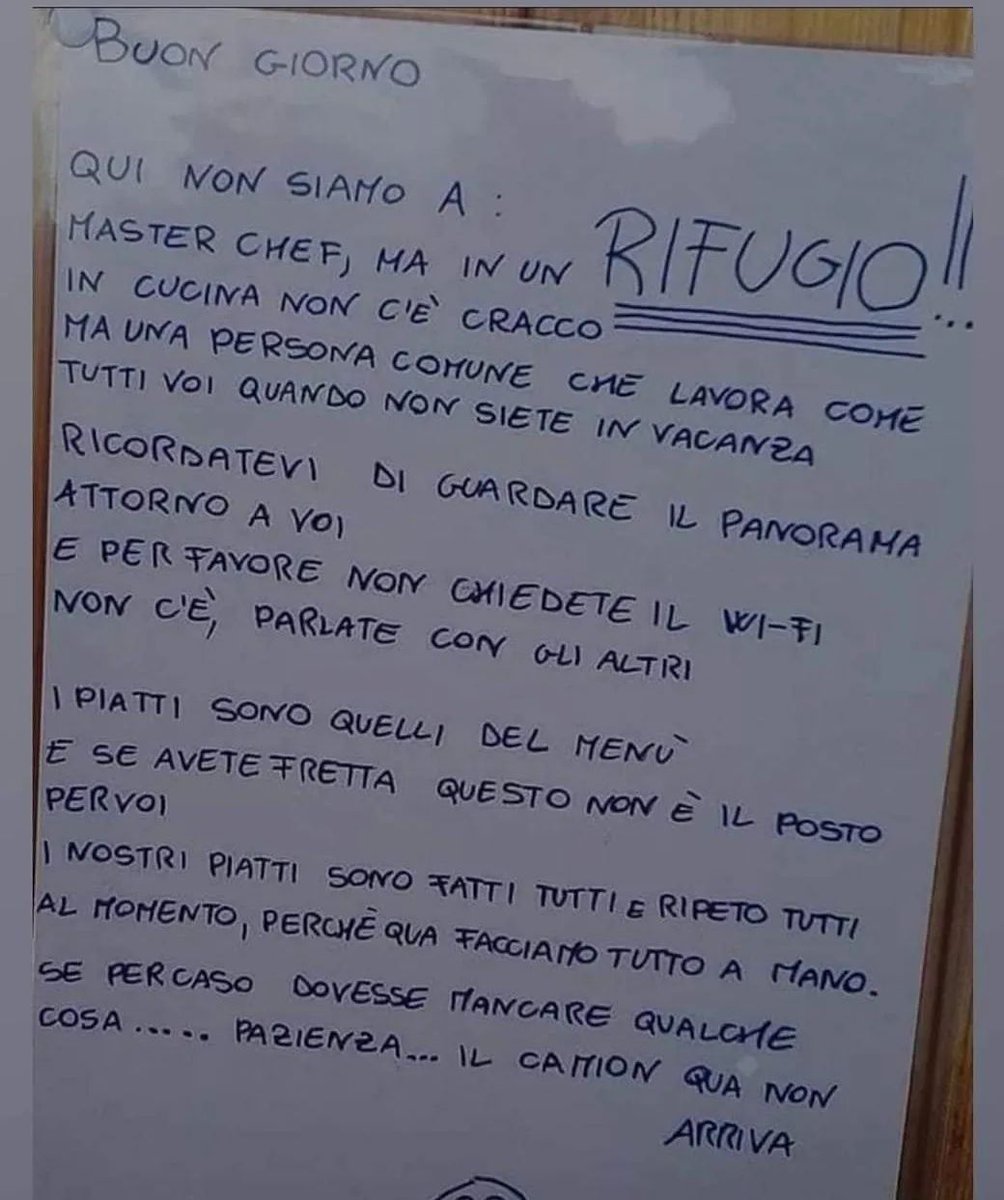 BUON GIORNO
QUI NON SIAMO A :
MASTER CHEF, MA IN UN RIFUGIO!!...
IN CUCINA NON C'È CRACCO
MA UNA PERSONA COMUNE CHE LAVORA COME
TUTTI VOI QUANDO NON SIETE IN VACANZA
RICORDATEVI DI GUARDARE IL PANORAMA
ATTORNO A VOI
E PER FAVORE NON CHIEDETE IL WI-FI
NON C'È, PARLATE CON GLI ALTRI
I PIATTI SONO QUELLI DEL MENÙ
E SE AVETE FRETTA QUESTO NON È IL POSTO
PER VOI
I NOSTRI PIATTI SONO FATTI TUTTI E RIPETO TUTTI
AL MOMENTO, PERCHÈ QUA FACCIAMO TUTTO A MANO.
SE PER CASO DOVESSE MANCARE QUALCHE
COSA ..... PAZIENZA... IL CAMION QUA NON
ARRIVA